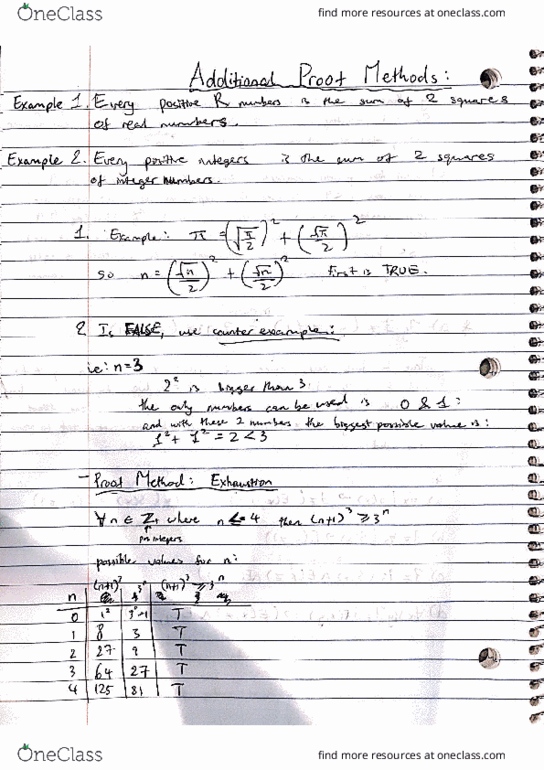 OneClass find more resources at oneclass.com
Additional Proof Methods:
Example 1. Every positive R numbers is the sum of 2 squares
of real numbers.
Example 2. Every positive integers is the sum of 2 squares
of integer numbers.
1. Example: π = (√π/2)² + (√π/2)²
so n = (√n/2)² + (√n/2)² first is TRUE.
2 Is FALSE, use counter examples:
ie: n=3
2² is bigger than 3.
the only numbers can be used is 0 & 1:
and with these 2 numbers the biggest possible value is:
1² + 1² = 2 < 3
- Proof Method: Exhaustion
∀n ∈ Z+ where n ≤ 4 then (n+1)³ ≥ 3ⁿ
pos integers
possible values for n:
n (n+1)³ 3ⁿ (n+1)³ ≥ 3ⁿ
0 1³ 3⁰=1 T
1 8 3 T
2 27 9 T
3 64 27 T
4 125 81 T
OneClass find more resources at oneclass.com